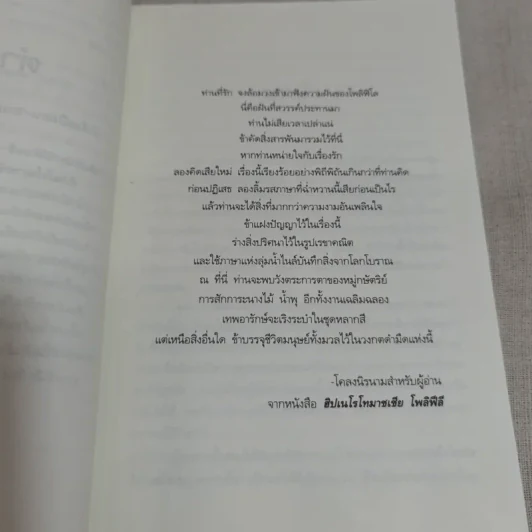 ท่านที่รัก จงล้อมวงเข้ามาฟังความฝันของโพลิฟิโล
นี่คือฝันที่สวรรค์ประทานมา
ท่านไม่เสียเวลาเปล่าแน่
ข้าคัดสิ่งสารพันมารวมไว้ที่นี่
หากท่านหน่ายใจกับเรื่องรัก
ลองคิดเสียใหม่ เรื่องนี้เรียงร้อยอย่างพิถีพิถันเกินกว่าที่ท่านคิด
ก่อนปฏิเสธ ลองลิ้มรสภาษาที่ฉ่ำหวานนี้เสียก่อนเป็นไร
แล้วท่านจะได้สิ่งที่มากกว่าความงามอันเพลินใจ
ข้าแฝงปัญญาไว้ในเรื่องนี้
ร่างสิ่งปริศนาไว้ในรูปเรขาคณิต
และใช้ภาษาแห่งลุ่มน้ำไนล์บันทึกสิ่งจากโลกโบราณ
ณ ที่นี่ ท่านจะพบวังตระการตาของหมู่กษัตริย์
การสักการะนางไม้ น้ำพุ อีกทั้งงานเฉลิมฉลอง
เทพอารักษ์จะเริงระบำในชุดหลากสี
แต่เหนือสิ่งอื่นใด ข้าบรรจุชีวิตมนุษย์ทั้งมวลไว้ในวงกตดำมืดแห่งนี้
-โคลงนิรนามสำหรับผู้อ่าน
จากหนังสือ ฮิปเนโรโทมาชเชีย โพลิฟีลี